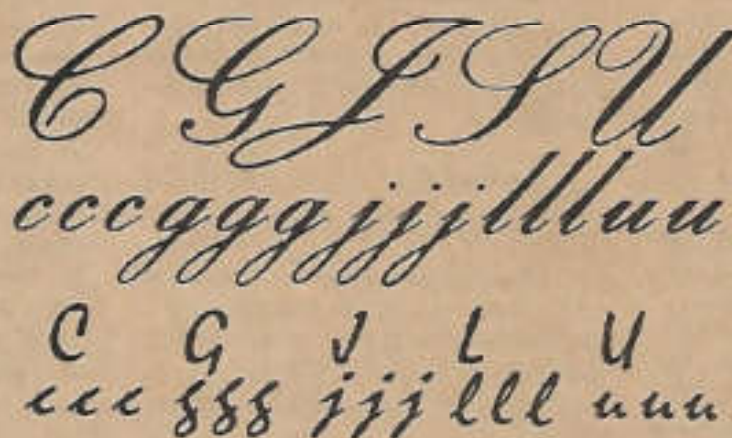 C G J S U
cccgggjjjllluu
C G J L U
ccc ggg jjj lll uuu